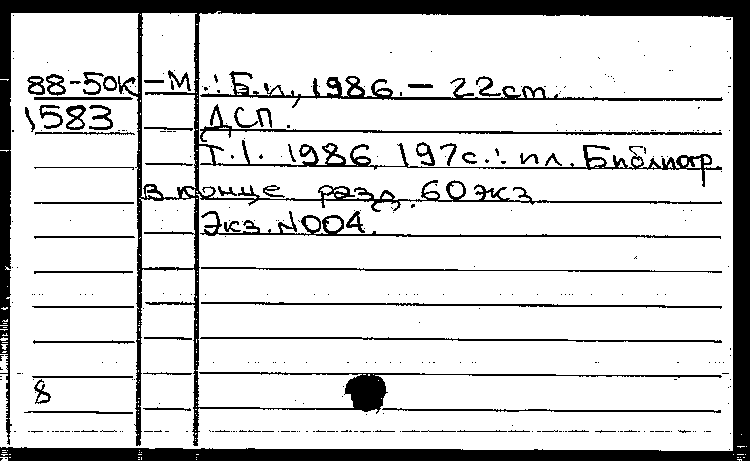 88-50К -М.: Б.и., 1986. - 22 ст.
1583 ДСП.
Т.1. 1986 197с.: ил. Библиогр
в конце разд. 60 экз
Экз. N004.
8